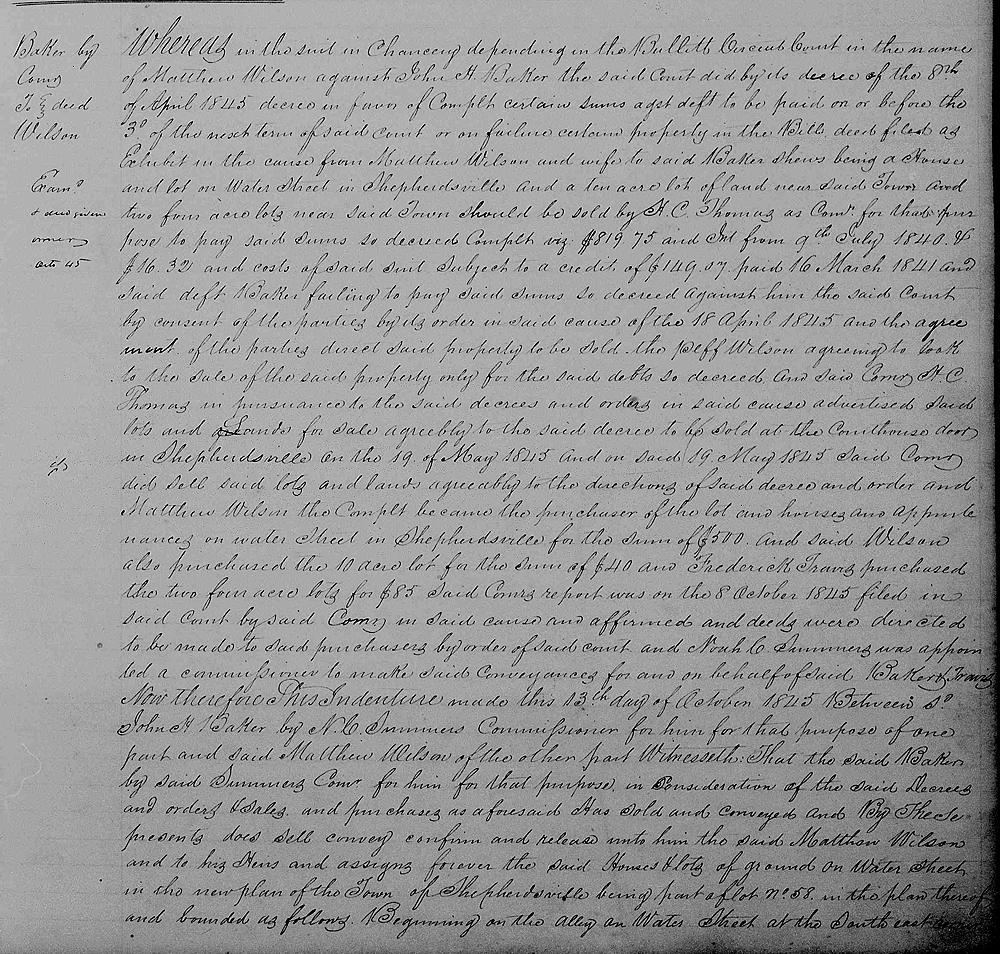 Baker by
Comr
To } deed
Wilson
Examd
& deed given
owner
octo 45
Whereas in the suit in Chancery depending in the Bullitt Circuit Court in the name
of Matthew Wilson against John H. Baker the said Court did by its decree of the 8th
of April 1845 decree in favor of Complt certain sums agst deft to be paid on or before the
3d of the next term of said court or on failure certain property in the Bill, deed filed as
Exhibit in the cause from Matthew Wilson and wife to said Baker shews being a House
and lot on Water Street in Shepherdsville and a ten acre lot of land near said Town and
two four acre lots near said Town should be sold by H. C. Thomas as Comr. for that pur
pose to pay said sums so decreed Complt viz $819 75 and Int from 9th July 1840. &
$16.32 and costs of said suit subject to a credit of $149.07. paid 16 March 1841 and
said deft Baker failing to pay said sums so decreed against him the said Court
by consent of the parties by its order in said cause of the 18 April 1845 and the agree
ment. of the parties direct said property to be sold. the Plff Wilson agreeing to look
to the sale of the said property only for the said debts so decreed. And said Comr H. C.
Thomas in pursuance to the said decrees and orders in said cause advertised said
lots and Lands for sale agreebly to the said decree to be sold at the Courthouse door
in Shepherdsville on the 19. of May 1845 and on said 19 May 1845 said Comr
did sell said lots and lands agreeably to the directions of said decree and order and
Matthew Wilson the Complt became the purchaser of the lot and houses and appurte
nances on water Street in Shepherdsville for the sum of $500. and said Wilson
also purchased the 10 acre lot for the sum of $40 and Frederick Travis purchased
the two four acre lots for $85 said Comrs report was on the 8 October 1845 filed in
said Court by said Comr in said cause and affirmed and deeds were directed
to be made to said purchasers by order of said court and Noah C. Summers was appoin
ted a commissioner to make said Conveyances for and on behalf of said Baker & Travis
Now therefore This Indenture made this 13th day of October 1845 Between sd
John H Baker by N. C. Summers Commissioner for him for that purpose of one
part and said Matthew Wilson of the other part Witnesseth: That the said Baker
by said Summers Comr for him for that purpose, in Consideration of the said Decrees
and orders & sales. and purchases as aforesaid Has sold and conveyed and By These
presents does sell convey confirm and release unto him the said Matthew Wilson
and to his Heirs and assigns forever the said Houses & lots of ground on Water Street
in the new plan of the Town of Shepherdsville being part of lot No 58. in the plan thereof
and bounded as follows. Beginning on the alley on Water Street at the South east corner